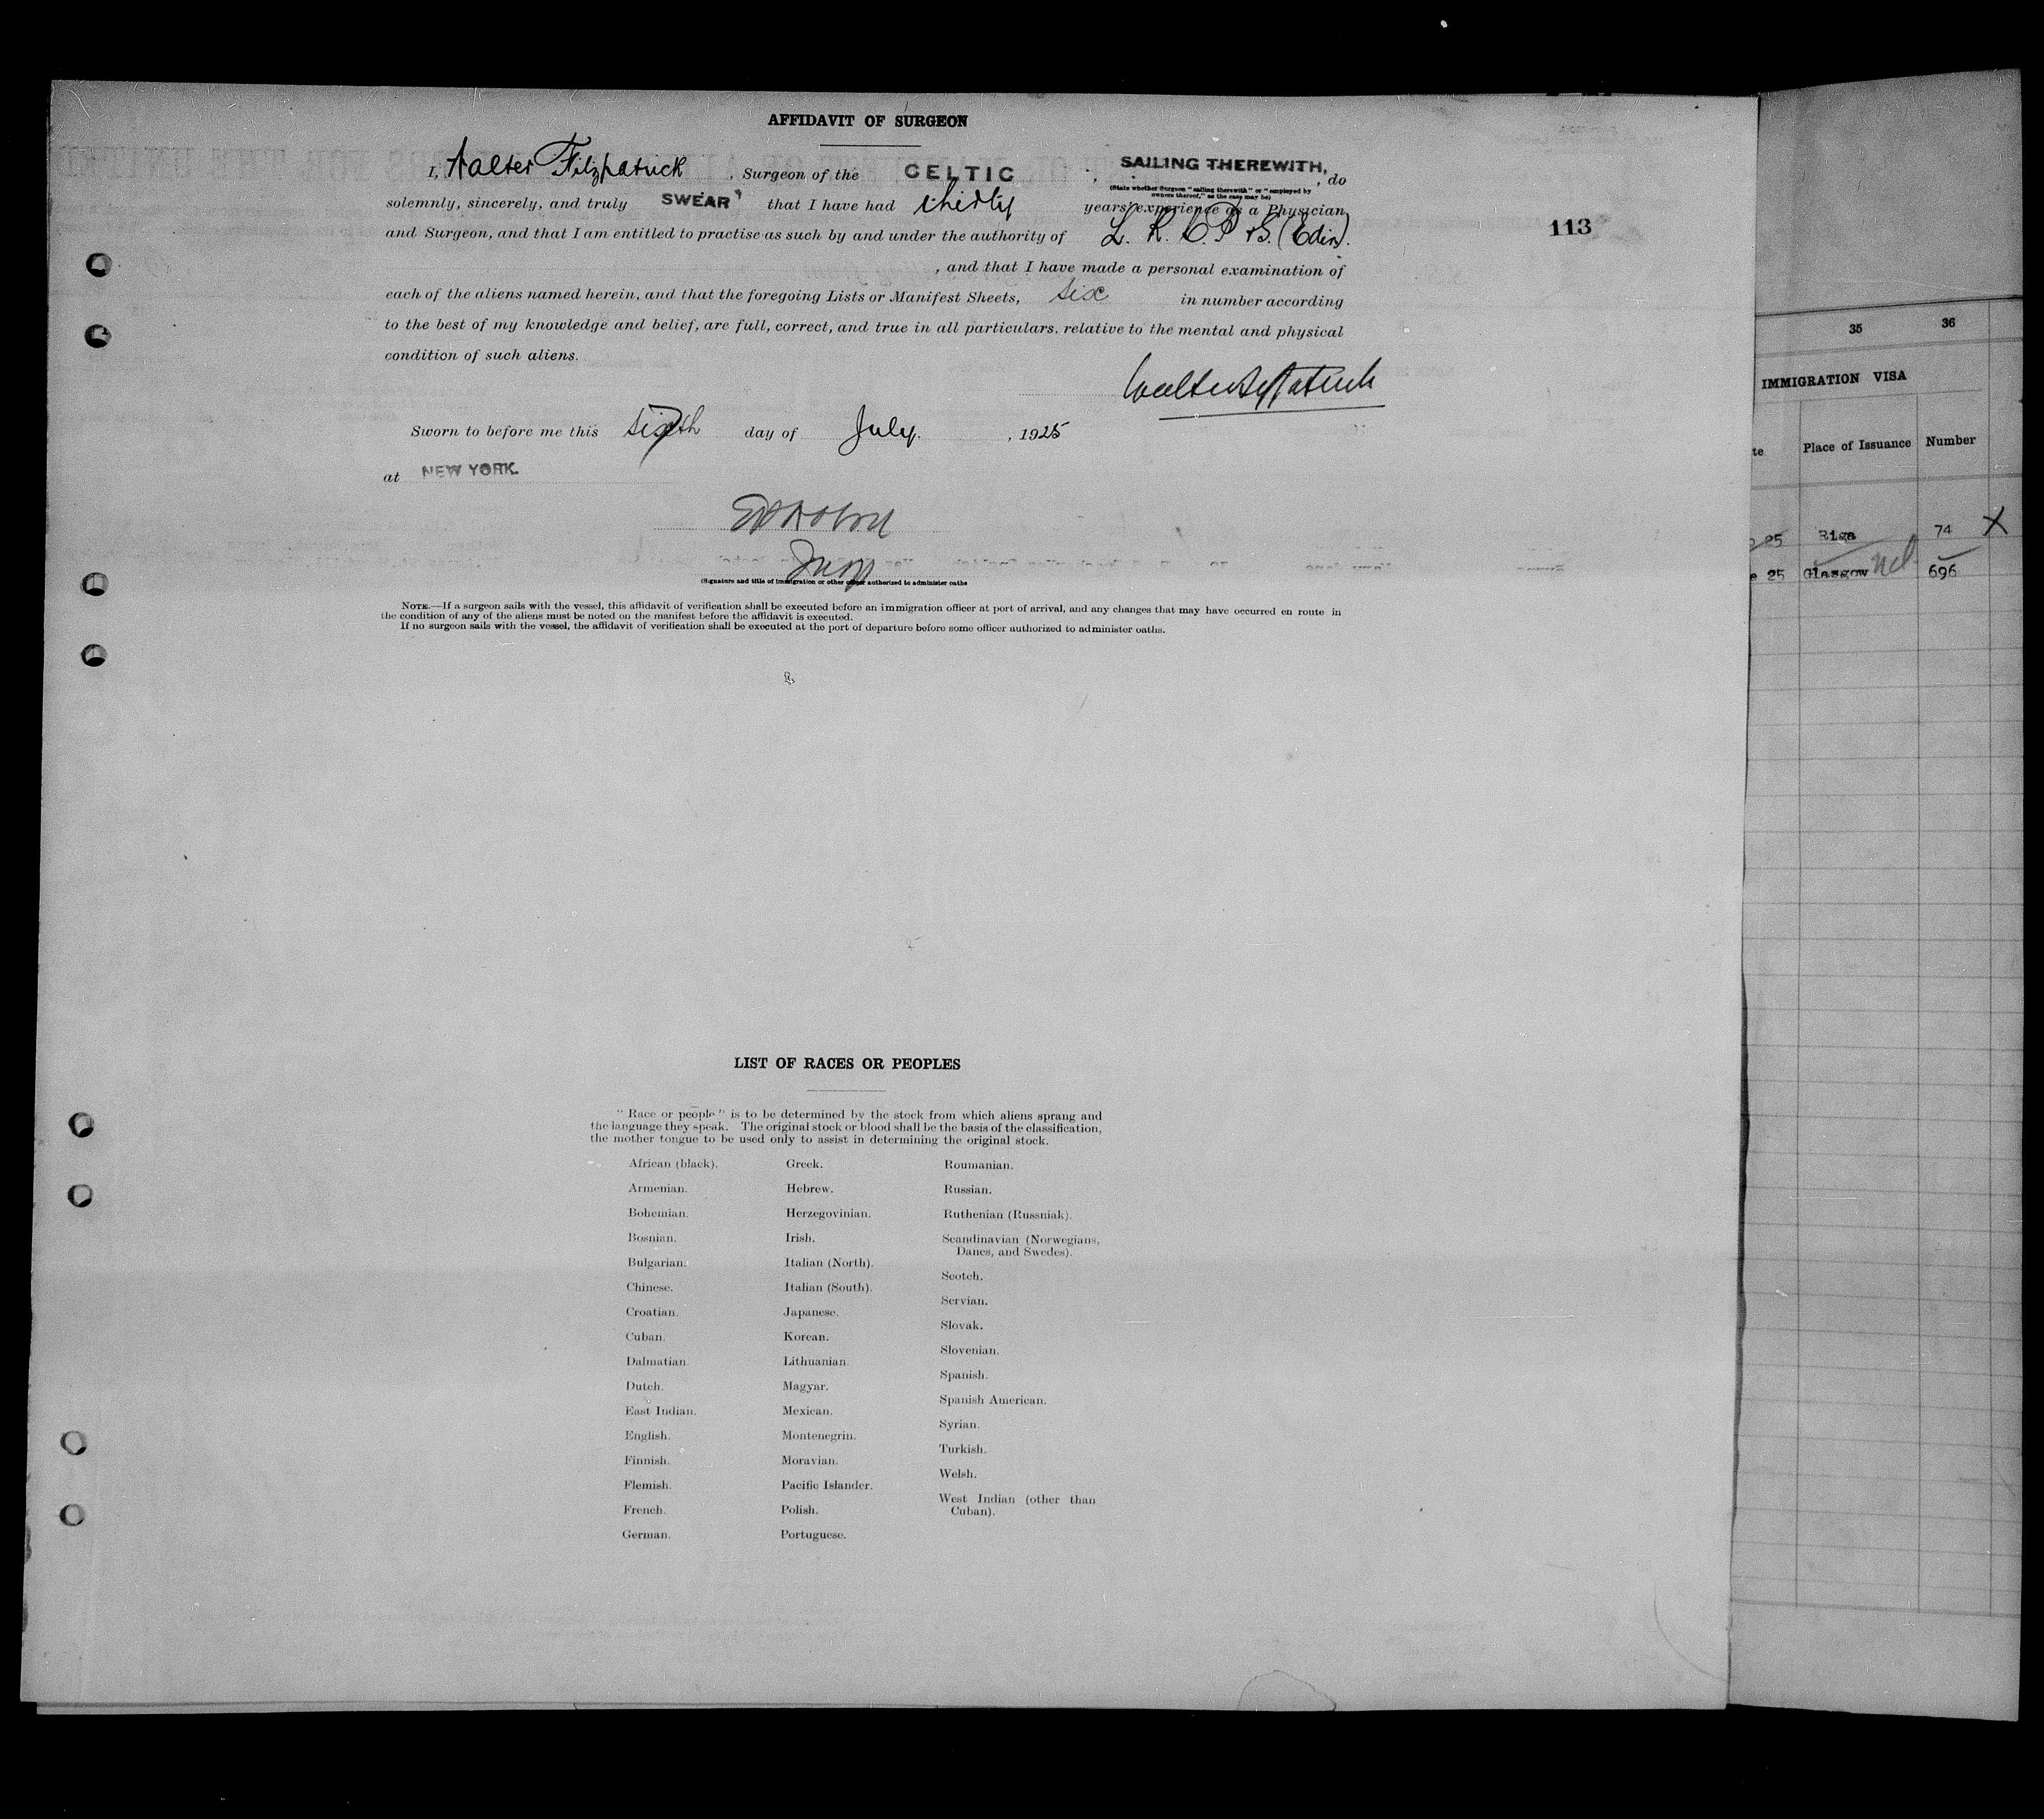 AFFIDAVIT OF SURGEON
I, Walter Fitzpatrick, Surgeon of the CELTIC, SAILING THEREWITH, do
(State whether Surgeon "sailing therewith" or "employed by
owners thereof," as the case may be)
solemnly, sincerely, and truly SWEAR that I have had thirty years' experience as a Physician
and Surgeon, and that I am entitled to practise as such by and under the authority of L. R. C. P. & S. (Edin).
113
, and that I have made a personal examination of
each of the aliens named herein, and that the foregoing Lists or Manifest Sheets, six in number according
to the best of my knowledge and belief, are full, correct, and true in all particulars, relative to the mental and physical
condition of such aliens.
Walter Fitzpatrick
Sworn to before me this sixth day of July. , 1925
at NEW YORK.
(Signature and title of immigration or other officer authorized to administer oaths
NOTE.—If a surgeon sails with the vessel, this affidavit of verification shall be executed before an immigration officer at port of arrival, and any changes that may have occurred en route in
the condition of any of the aliens must be noted on the manifest before the affidavit is executed.
If no surgeon sails with the vessel, the affidavit of verification shall be executed at the port of departure before some officer authorized to administer oaths.
LIST OF RACES OR PEOPLES
"Race or people" is to be determined by the stock from which aliens sprang and
the language they speak. The original stock or blood shall be the basis of the classification,
the mother tongue to be used only to assist in determining the original stock.
African (black).
Armenian.
Bohemian.
Bosnian.
Bulgarian.
Chinese.
Croatian.
Cuban.
Dalmatian.
Dutch.
East Indian.
English.
Finnish.
Flemish.
French.
German.
Greek.
Hebrew.
Herzegovinian.
Irish.
Italian (North).
Italian (South).
Japanese.
Korean.
Lithuanian.
Magyar.
Mexican.
Montenegrin.
Moravian.
Pacific Islander.
Polish.
Portuguese.
Roumanian.
Russian.
Ruthenian (Russniak).
Scandinavian (Norwegians,
Danes, and Swedes).
Scotch.
Servian.
Slovak.
Slovenian.
Spanish.
Spanish American.
Syrian.
Turkish.
Welsh.
West Indian (other than
Cuban).
35 36
IMMIGRATION VISA
te Place of Issuance Number
25 Riga 74 X
e 25 Glasgow 696